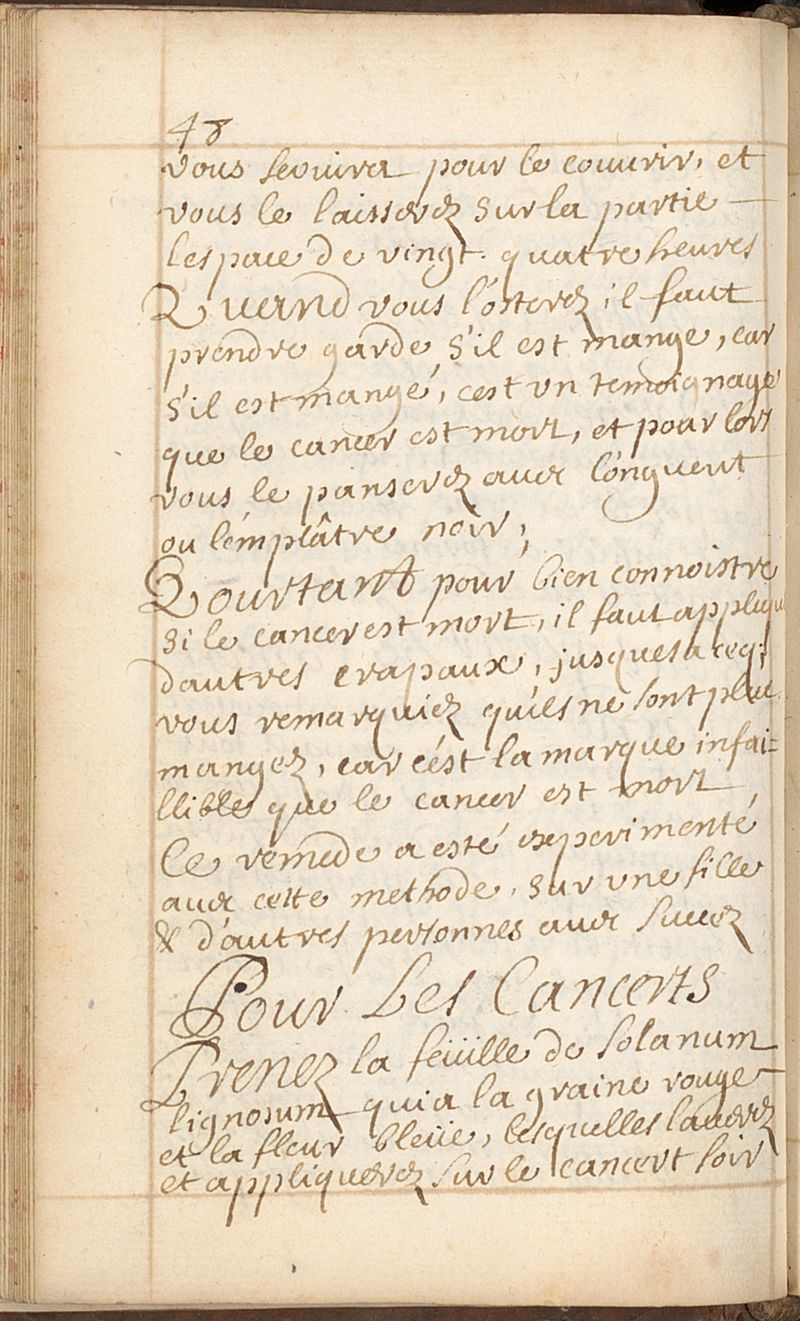 48
vous servira pour le couurir, et
vous le laisserez sur la partie
lespace de vingt. quatre heures
Quand vous l'osterez il faut
prendre garde s'il est mangé, car
s'il est mangé, cest vn temoignage
que le cancer est mort, et pour lors
vous le panserez auec l'onguent
ou l'emplâtre noir,
Pourtant pour bien connoistre
si le cancer est mort, il faut applique
dautres crapaux, jusques a ceq;
vous remarquiez qu'ils ne sont plus
mangez, car c'ést la marque infai=
llible que le cancer est mort,
Ce remede a esté experimenté
auec cette methode, sur vne fille
& d'autres personnes auec succez
Pour Les Cancerts
Prenez la feüille de solanum
lignosum qui a la graine rouge
et la fleur bleüe, lesquelles lauerez
et appliquerez sur le cancert soir